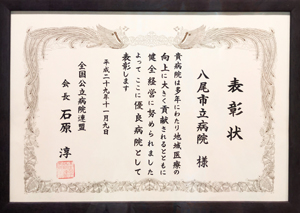 表彰状
八尾市立病院 様
貴病院は多年にわたり地域医療の
向上に大きく貢献されるとともに
健全経営に努められました
よって ここに優良病院として
表彰します
平成二十九年十一月九日
全国公立病院連盟
会長 石原 淳